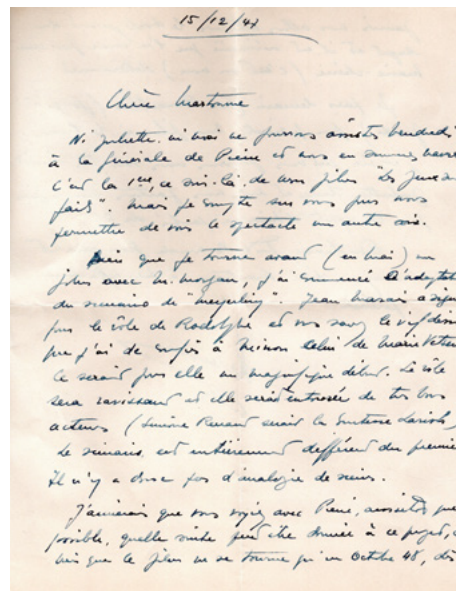 15/12/47
Chère
Ni Juliette ni moi ne pouvons assister Vendredi
à la générale de Pierre et nous en sommes navré
C'est la 1ère, ce soir-là, de mon film "Les jeux so
faits". Mais je compte sur vous pour nous
permettre de voir ce spectacle un autre soir.
Bien que je tourne avant (en mai) un
film avec M. Morgan, j'ai commencé l'adaptat
du scenario de "Mayerling". Jean Marais a sign
pour le rôle de Rodolphe et vous savez le vif désir
que j'ai de confier à Ninon celui de Marie Vetse
Ce serait pour elle un magnifique début. Le rôle
sera ravissant et elle serait entourée de très bons
acteurs (Simone Renant serait la Comtesse Larisch
Le scénario est entièrement différent du premie
Il n'y a donc pas d'analogie de scènes.
J'aimerais que vous voyiez avec Pierre, aussitôt que
possible, quelle suite peut être donnée à ce projet,
bien que le film ne se tourne qu'en Octobre 48, dès